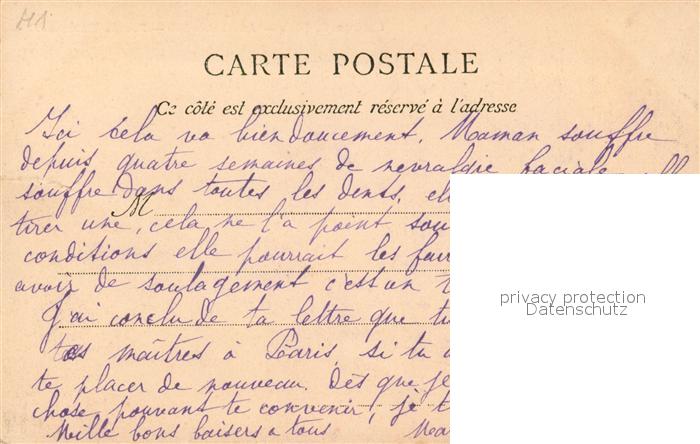 CARTE POSTALE
Ce côté est exclusivement réservé à l'adresse
Ici cela va bien doucement. Maman souffre
depuis quatre semaines de nevralgie faciale
souffre dans toutes les dents,
M
tirer une, cela ne l'a point
conditions elle pourrait les
avoir de soulagement c'est un
J'ai conclu de ta lettre que
tes maîtres à Paris, si tu
te placer de nouveau. Dès que je
chose pouvant te convenir, je
Mille bons baisers a tous
privacy protection
Datenschutz